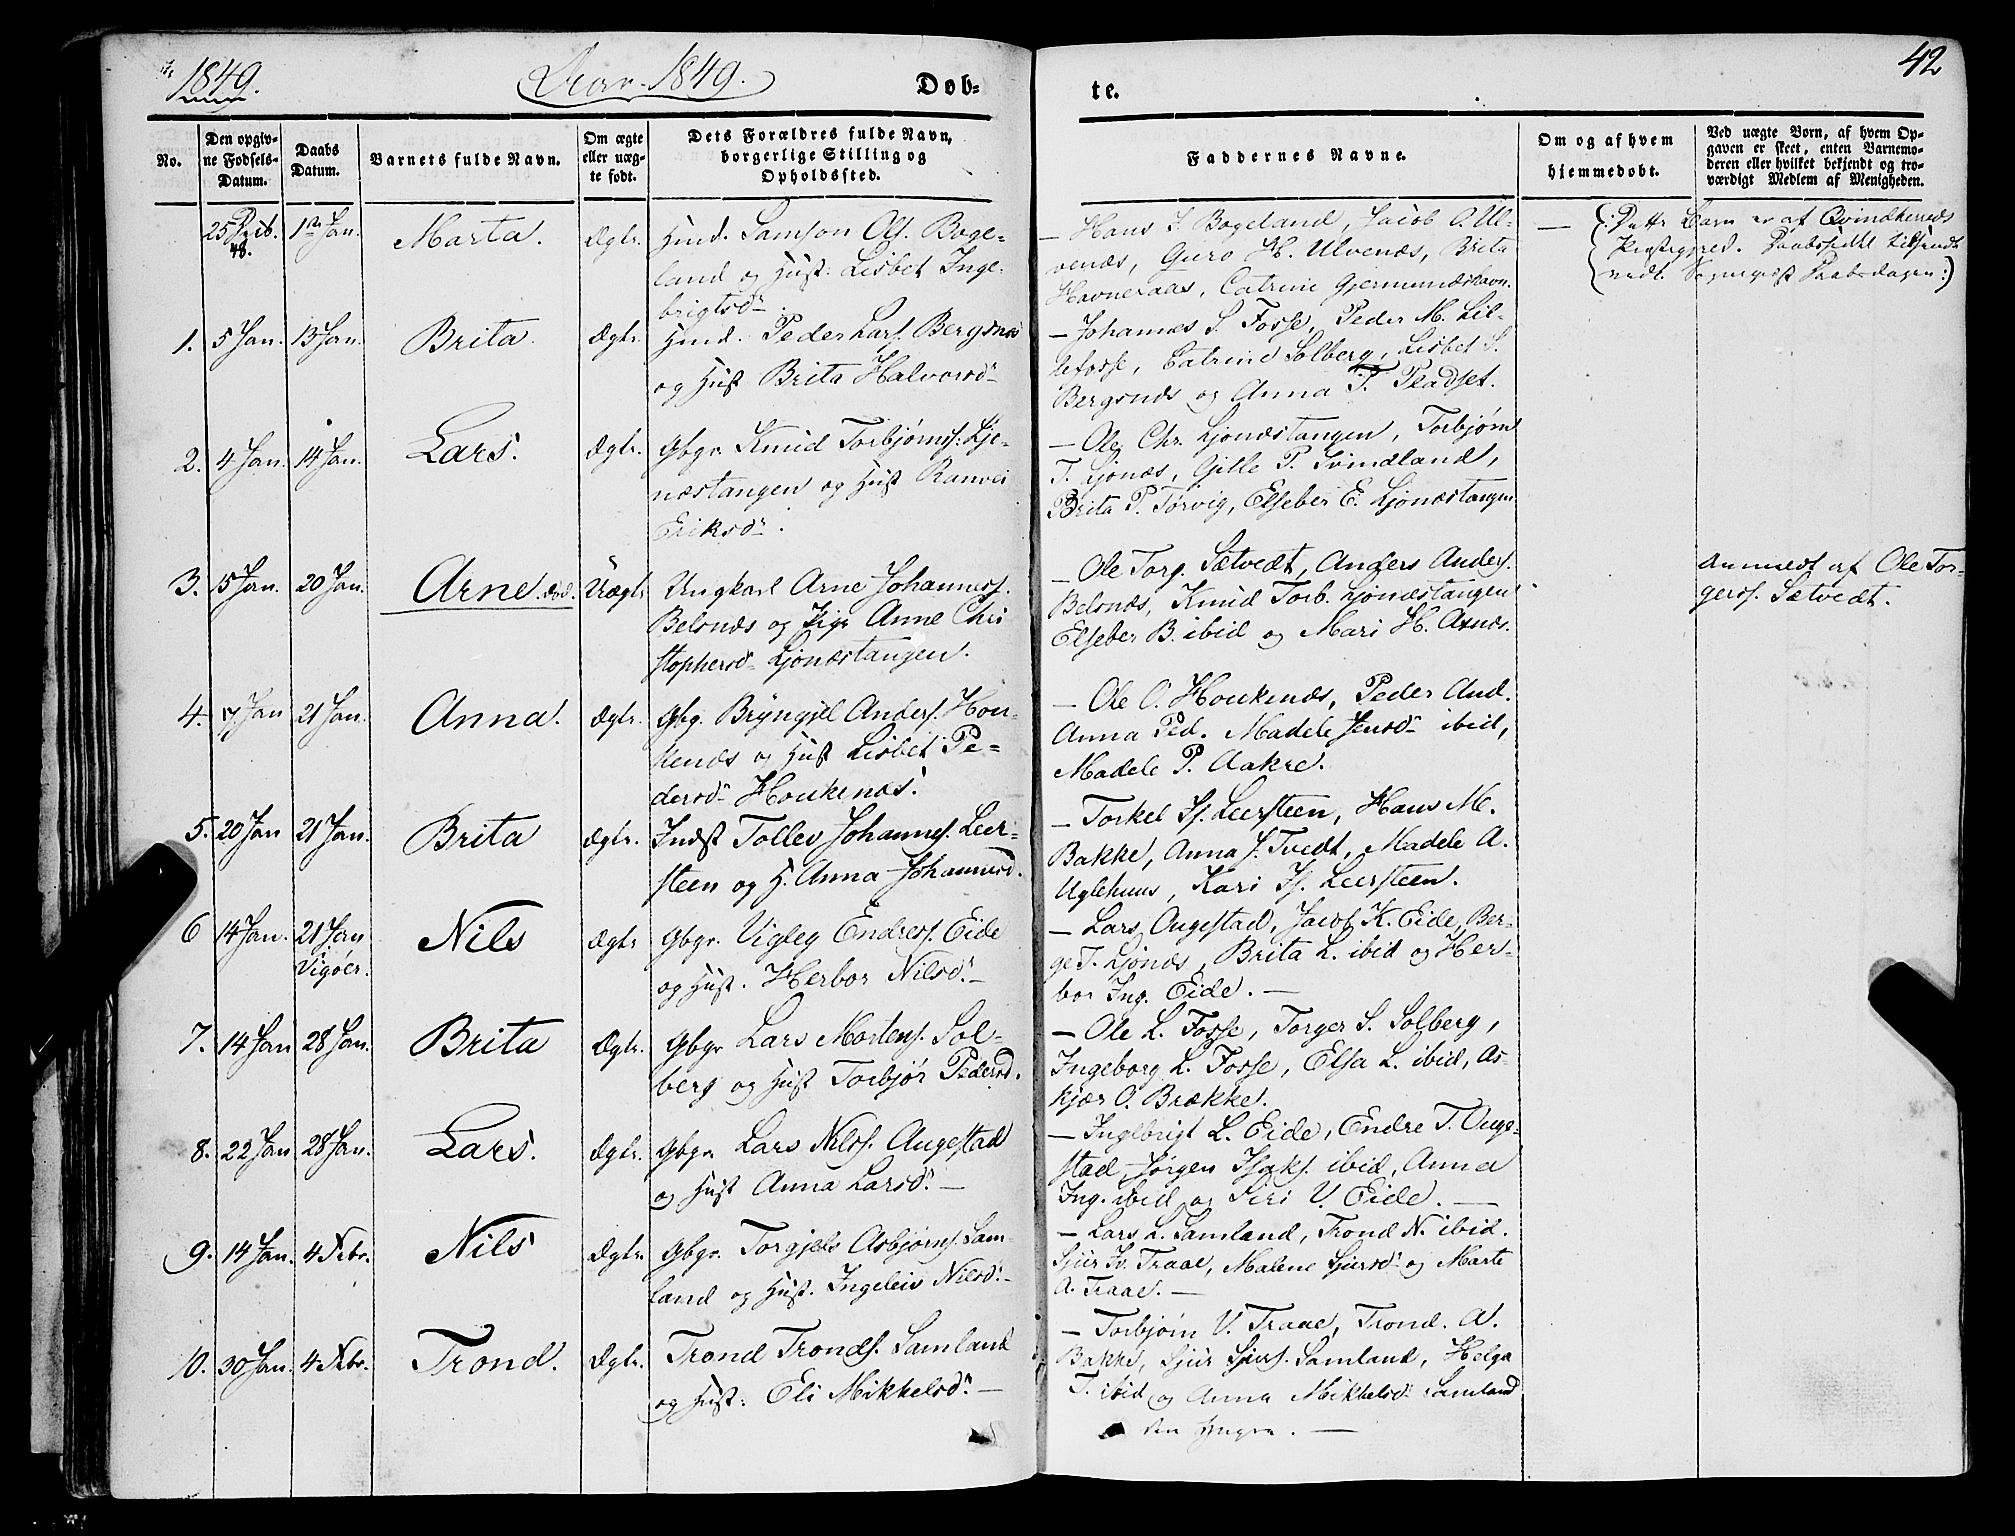 1849.
Aar 1849.
Døb-
te.
42
No.
Den opgiv-
ne Fødsels-
Datum.
Daabs
Datum.
Barnets fulde Navn.
Om ægte
eller uæg-
te født.
Dets Forældres fulde Navn,
borgerlige Stilling og
Opholdssted.
Faddernes Navne.
Om og af hvem
hjemmedøbt.
Ved uægte Børn, af hvem Op-
gaven er skeet, enten Barnemo-
deren eller hvilket bekjendt og tro-
værdigt Medlem af Menigheden.
25 Decb. 48.
1ste Jan.
Marta.
Ægte.
Huusmd. Samson Ols. Boge-
land og Hust: Lisbet Inge-
brigtsd.
— Hans J. Bogeland, Jacob O. Ul-
venæs, Guro H. Ulvenæs, Brita
Havneraas, Catrine Gjermundshavn.
—
(: Dette Barn er af Qvindherreds
Præstegjeld.
1. 5 Jan. 13 Jan. Brita. Ægte.
Huusmd. Peder Lars. Bergsnæs
og Hust Brita Halvorsd.
— Johannes S. Fosse, Peder M. Lil-
lefosse, Catrine Solberg, Lisbet S.
Bergsnæs og Anna T. Pladset.
2. 4 Jan. 14 Jan. Lars. Ægte.
Gbgr. Knud Torbjørns: Ljo-
næstangen og Hust Ranvei
Eriksd.
— Ole Chr. Ljonæstangen, Torbjørn
T. Ljonæs, Gitle P. Svindland,
Brita P. Tørvig, Elseber E. Ljonæstangen
3. 15 Jan. 20 Jan. Arne. død. Uægte
Ungkarl Arne Johanness.
Belsnæs og Pige Anne Chri
stophersd. Ljonæstangen.
— Ole Torg. Sætvedt, Anders Anders.
Belsnæs, Knud Torb. Ljonæstangen
Elseber B. ibid og Mari H. Axnæs.
Anmeldt af Ole Tor-
gerss. Sætvedt.
4. 7 Jan 21 Jan. Anna. Ægte.
Gbg. Bryngjel Anders. Hou-
kenæs og Hust Lisbet Pe-
dersd. Houkenæs.
— Ole O. Houkenæs, Peder And.
Anna Ped. Madele Jensd. ibid,
Madele P. Aakre.
5. 20 Jan 21 Jan. Brita Ægte.
Indst Tollev Johannes. Leer-
steen og H. Anna Johannesd.
— Torkel Is. Leersteen, Hans M.
Bakke, Anna J. Tvedt, Madele A.
Uglehuus, Kari Is. Leersteen.
6 14 Jan. 21 Jan Vigøer. Nils Ægte
Gbgr. Vigleg Endress. Eide
og Hust. Herbor Nilsd. —
— Lars Augestad, Jacob K. Eide, Ber-
ge T. Ljonæs, Brita L. ibid og Her-
bor Ing. Eide. —
7. 14 Jan 28 Jan. Brita Ægte.
Gbgr Lars Mortens. Sol-
berg og Hust Torbjør Pedersd.
— Ole L. Fosse, Torger S. Solberg,
Ingeborg L. Fosse, Elsa L. ibid, As-
kjær O. Brække.
8. 22 Jan 28 Jan. Lars. Ægte.
Gbgr Lars Nilss. Augestad
og Hust Anna Larsd. —
— Ingebrigt L. Eide, Endre T. Auge-
stad, Jørgen Isaks. ibid, Anna
Ing. ibid og Siri V. Eide. —
9. 14 Jan. 4 Febr. Nils Ægte.
Gbgr. Torgjels Asbjørns. Sam-
land og Hust. Ingeleiv Nilsd. —
— Lars L. Samland, Trond N. ibid.
Sjur Iv. Traae, Malene Sjursd. og Marte
A. Traae. —
10. 30 Jan. 4 Febr. Trond. Ægte.
Trond Tronds. Samland
og Hust: Eli Mikkelsd. —
— Torbjørn V. Traae, Trond. A.
Bakke, Sjur Sjurs. Samland, Helga
T. ibid og Anna Mikkelsd. Samland
den yngre. —